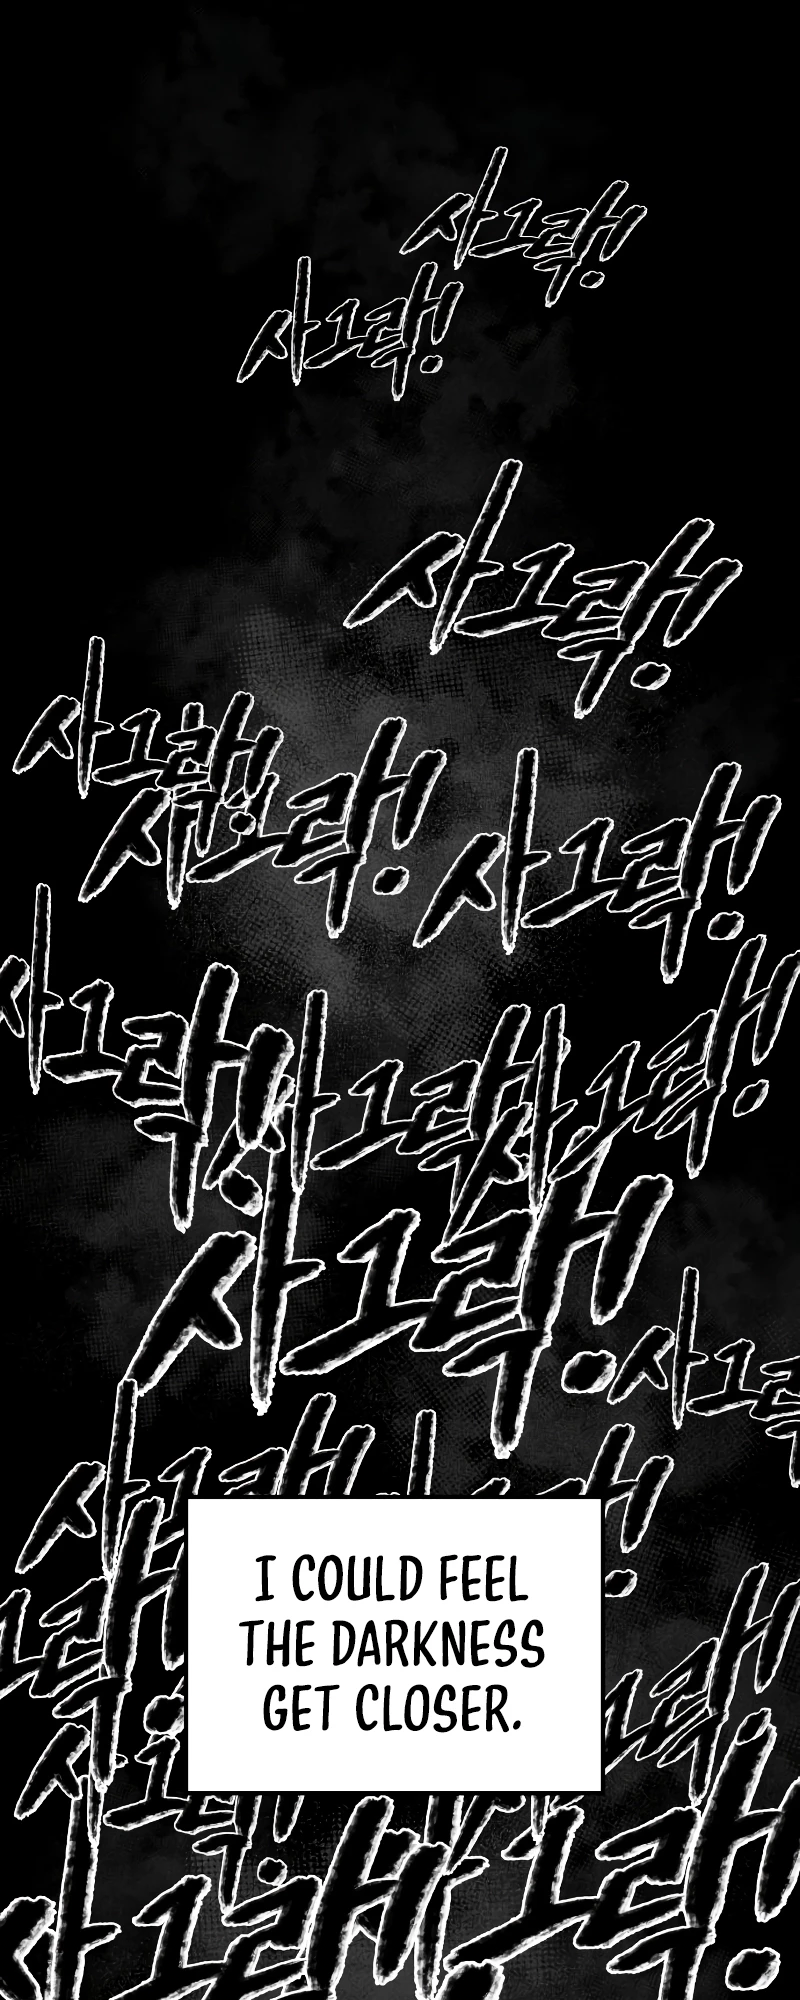 사그락!
사그락!
사그락!
사그락!
사그락!
사그락!
사그락!
사그락!
사그락!
사그락!
사그락
I COULD FEEL
THE DARKNESS
GET CLOSER.
사그락!
사그락!